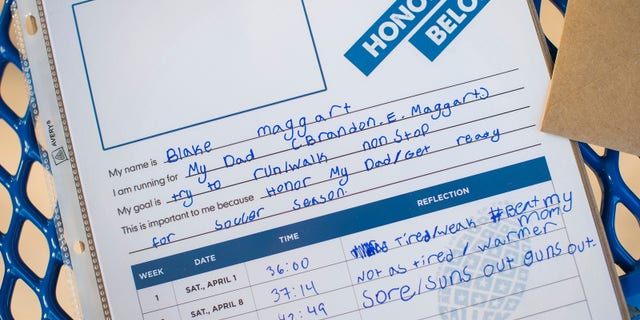 HONO
BELO
AVERY
My name is Blake maggart
I am running for My Dad (Brandon.E.Maggart.)
My goal is try to run/walk non stop
This is important to me because Honor My Dad/Get ready
for souccer season.
WEEK DATE TIME REFLECTION
1 SAT., APRIL 1 36:00 Tired/weak #Beat my mom
SAT., APRIL 8 37:14 Not as tired / warmer
42:49 Sore/suns out guns out.